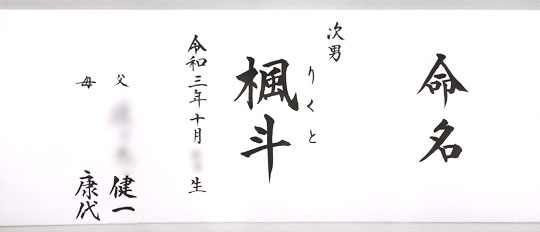 命名
次男
りくと
楓斗
令和三年十月 生
父 健一
母 康代